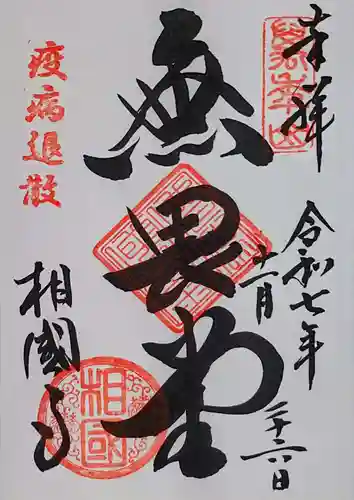 奉拝
萬年山
令和七年
十一月
二十六日
無畏堂
疫病退散
相國寺
相國